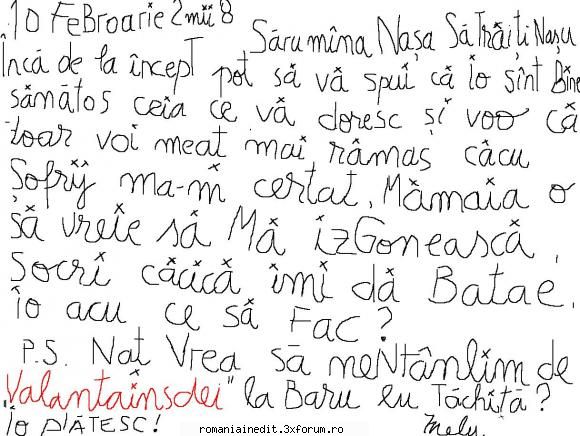 10 FeBroarie 2mii8
Săru mîna Nașa Să Trăiți Nașu
Încă de la încept pot să vă spui că io sînt Bine
sămătos ceia ce vă doresc și voo că
toar voi meat mai rămas căcu
Sofrÿ ma-m certat, Mămaia o
șă vreie să Mă izGonească,
Socri căcică imi dă Batae.
Io acu ce să FaC?
P.S. Nat Vrea să neNtânlim de
"Valantainsdei" la Baru lu Tăchiță?
Io PLĂTESC!
Melu.
romaniainedit.3xforum.ro